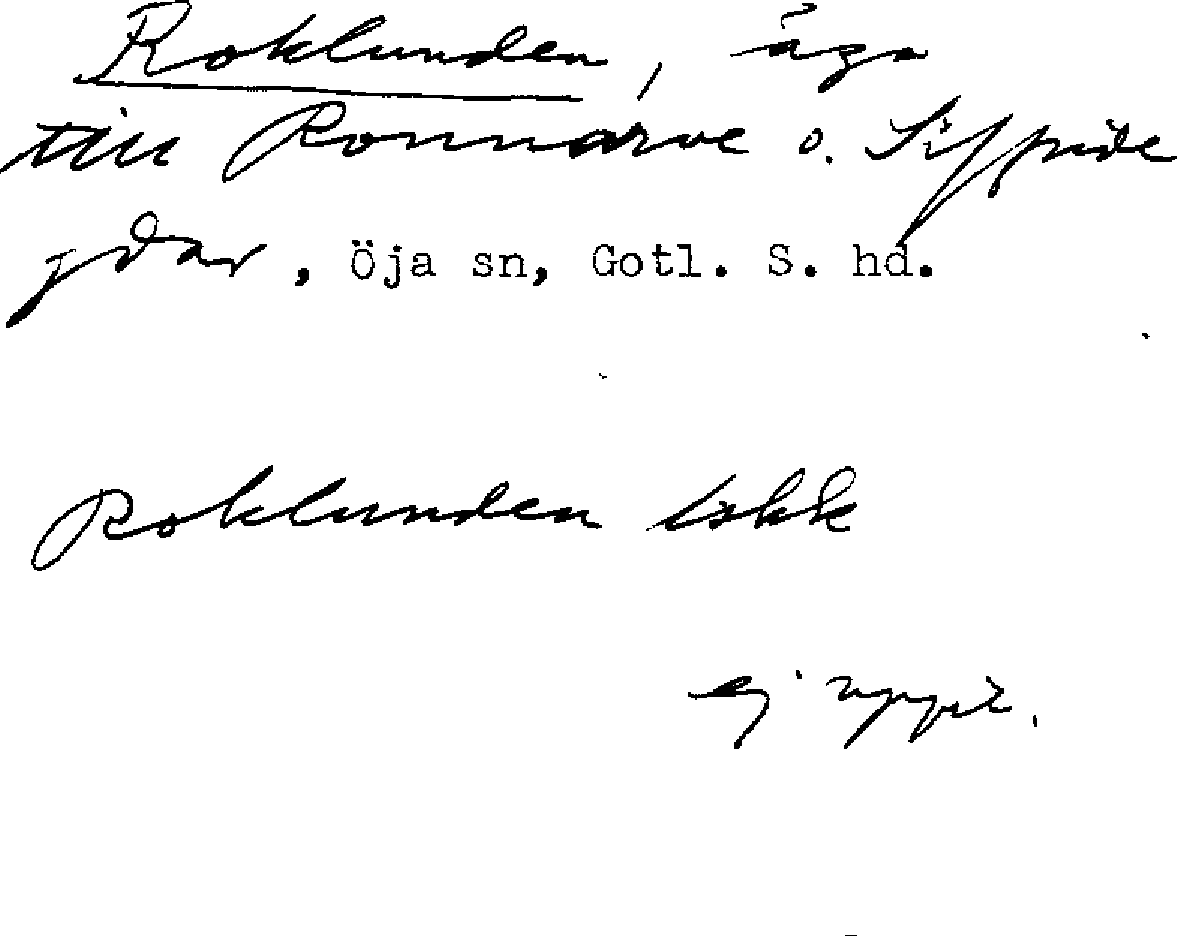 Roklunden, äga
till Ronnarve o. Siffride
gdar, Öja sn, Gotl. S. hd.
Roklunden
ej uppt.